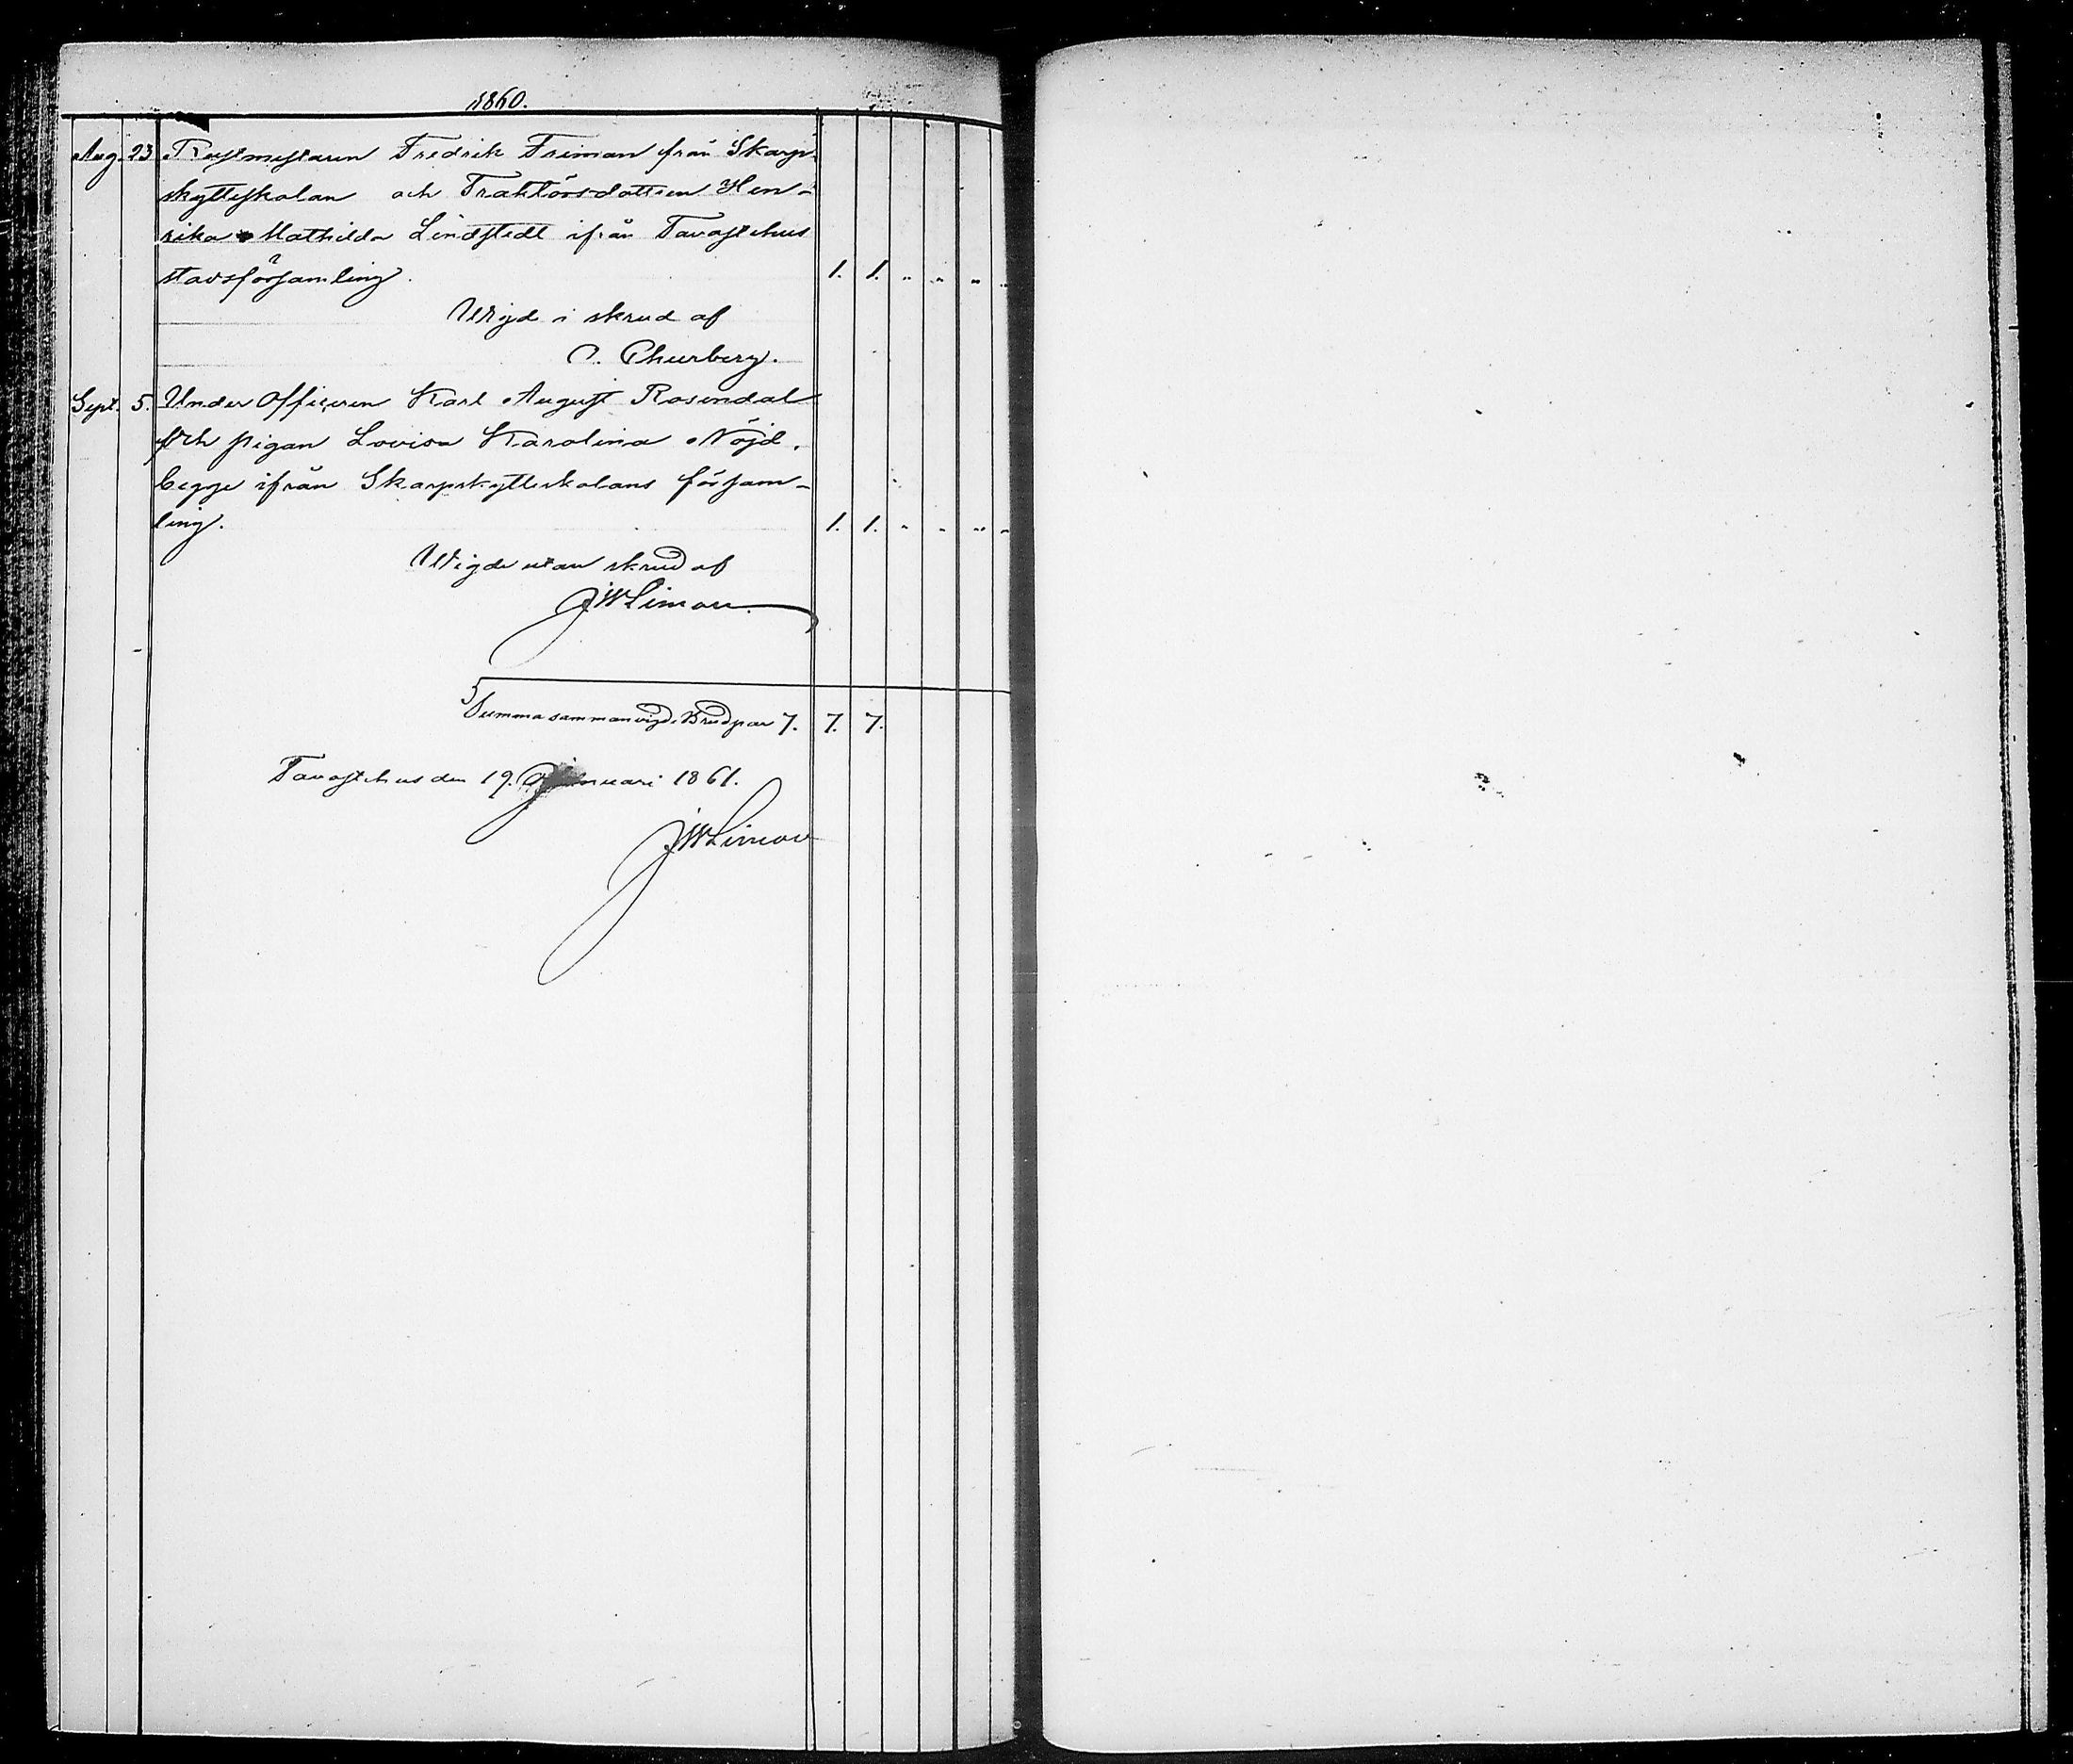 1860.
Aug. 23 Rustmästaren Fredrik Friman från Skarp-
skytteskolan och Traktörsdottren Hen-
rika Mathilda Lindstedt ifrån Tavastehus
stadsförsamling. 1. 1. " " " "
Wigd i skrud af
C. Churberg.
Sept. 5. Under Officeren Karl August Rosendal
och pigan Lovisa Karolina Nöjd,
begge ifrån Skarpskytteskolans försam-
ling. 1. 1. " " " "
Wigde utan skrud af
JWLimon.
Summa sammanvigde Brudpar 7. 7. 7.
Tavastehus den 19. Januari 1861.
JWLimon